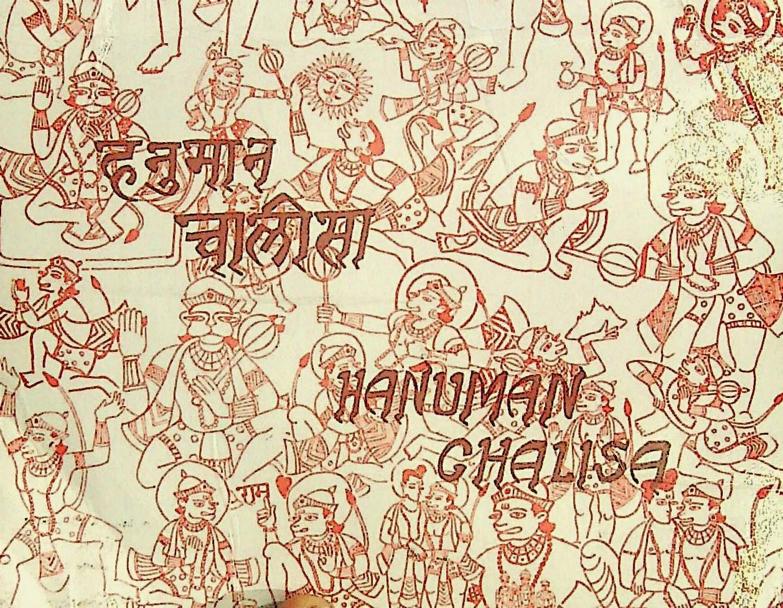 हनुमान
चालीसा
HANUMAN
CHALISA
राम